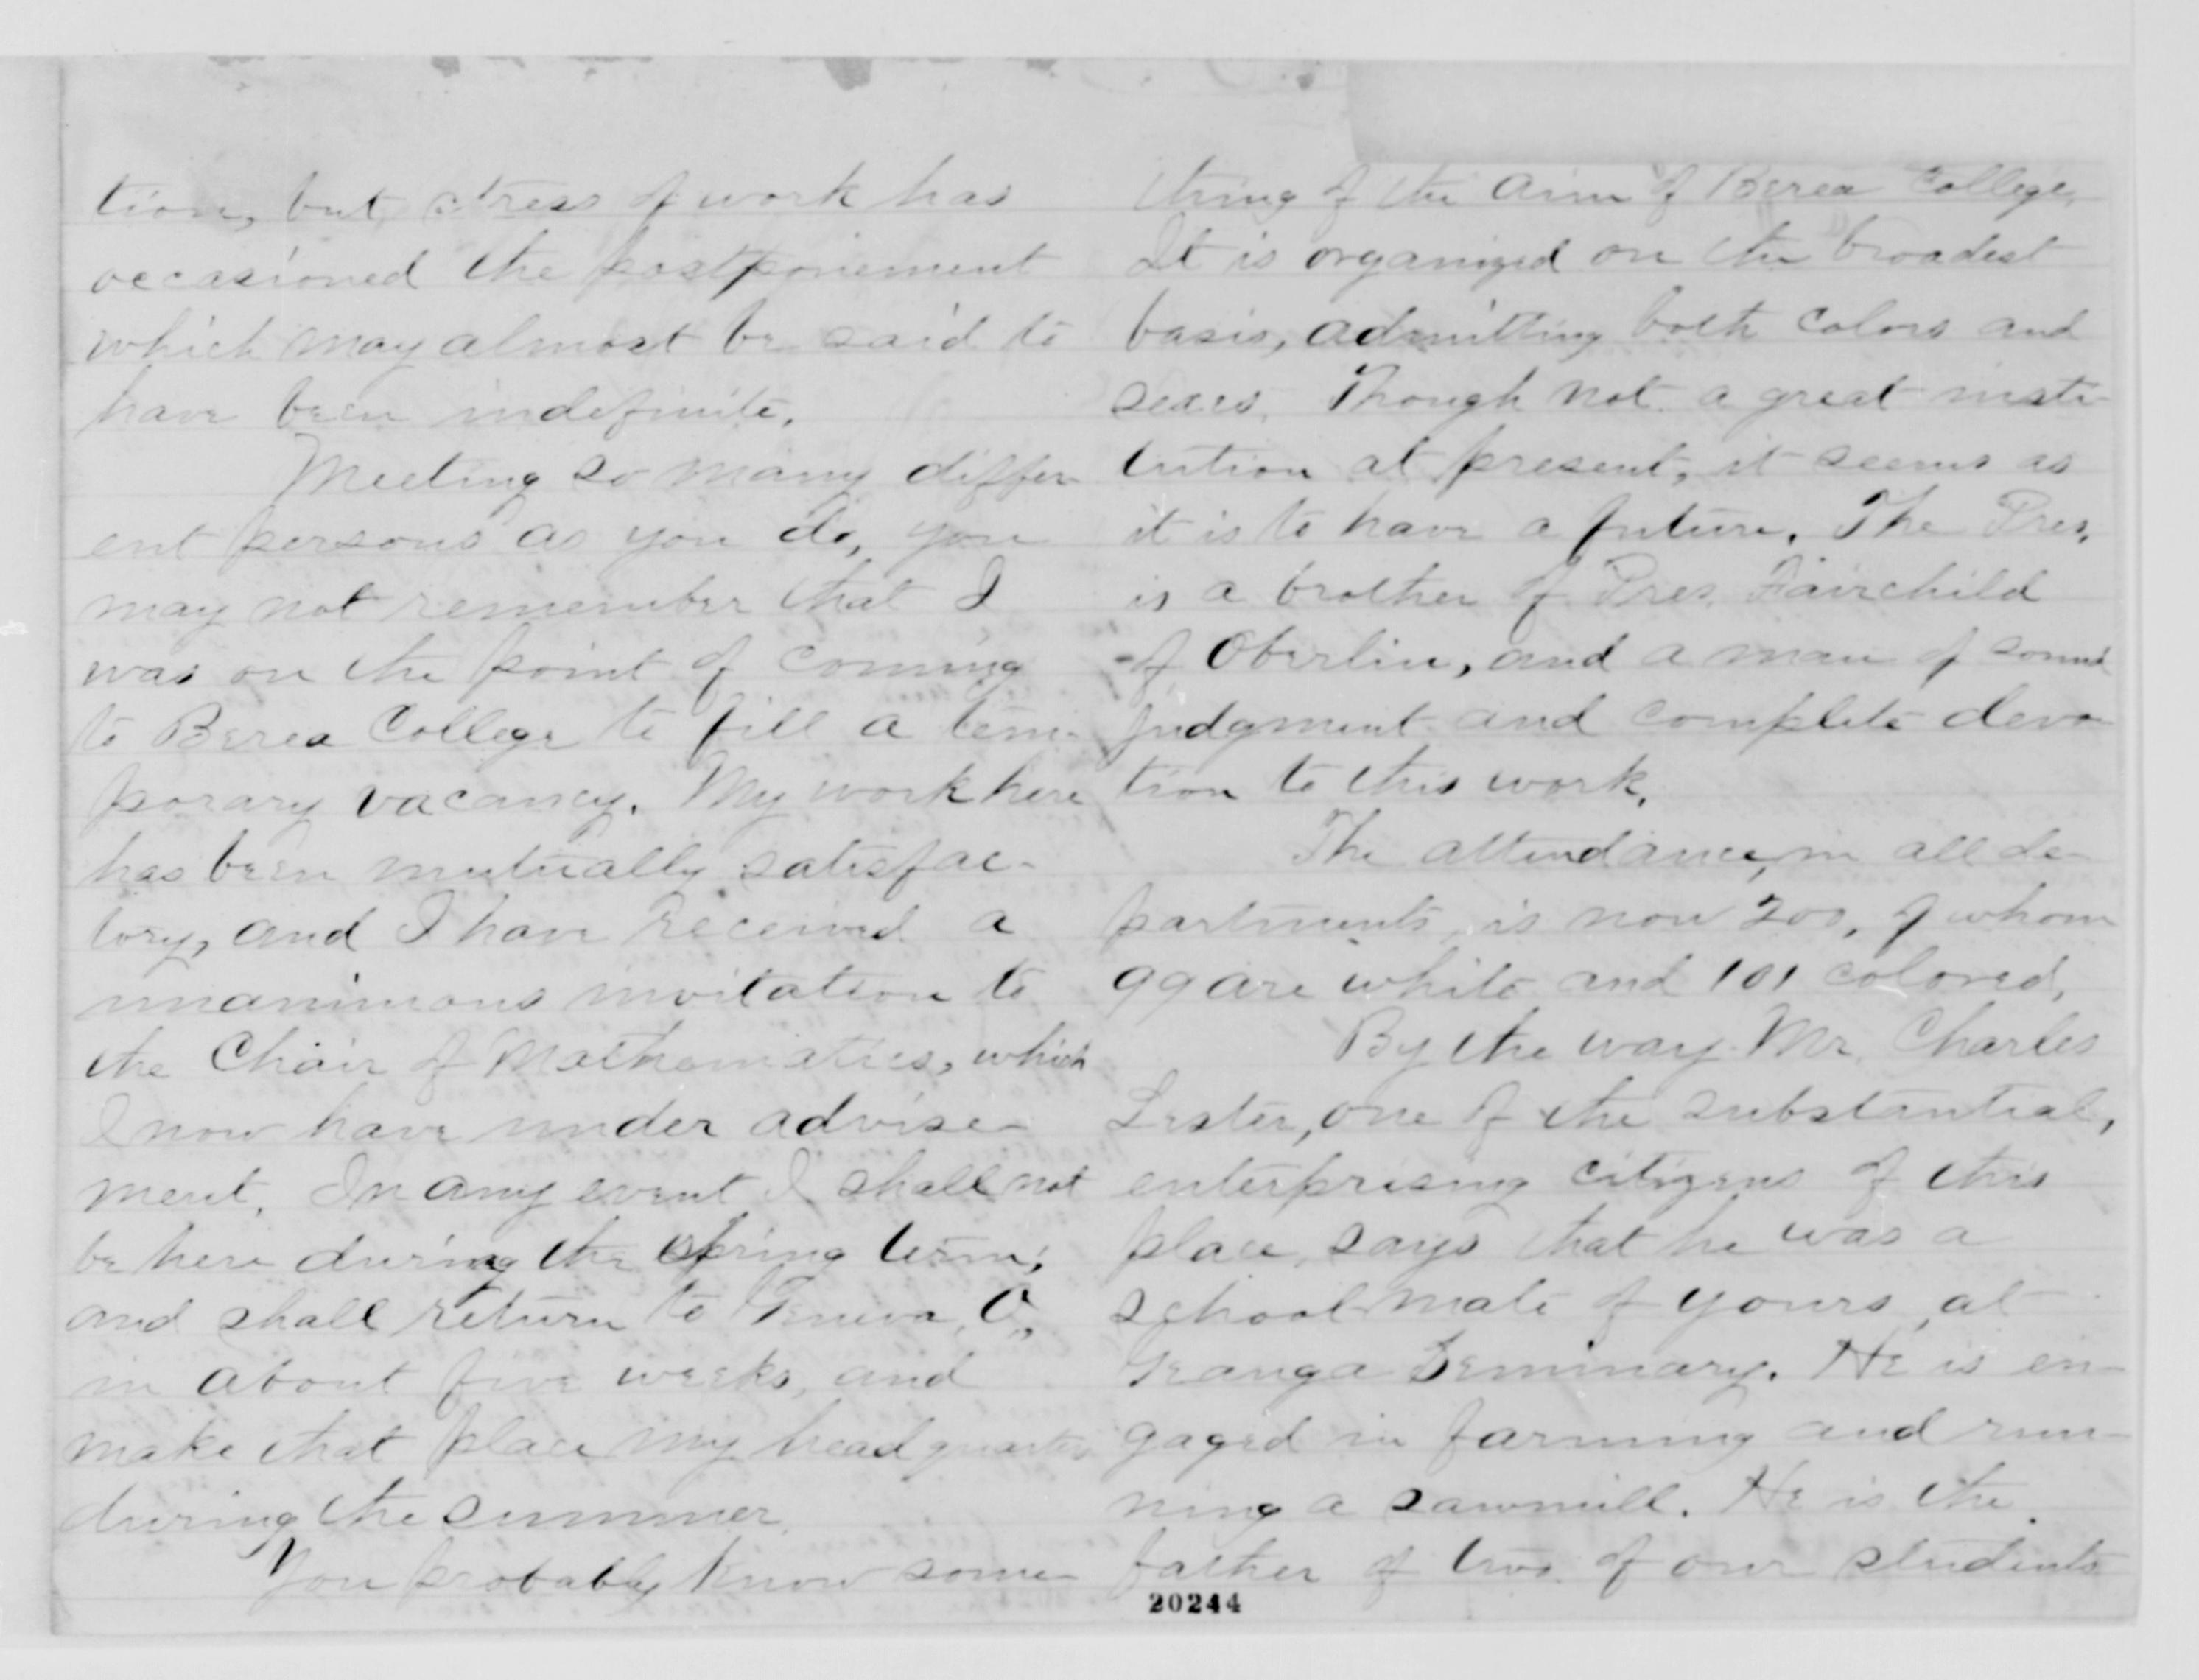 tion, but stress of work has
occasioned the postponement
which may almost be said to
have been indefinite.
Meeting so many differ-
ent persons as you do, you
may not remember that I
was on the point of coming
to Berea College to fill a tem-
porary vacancy. My work here
has been mutually satisfac-
tory, and I have received a
unanimous invitation to
the Chair of Mathematics, which
I now have under advise-
ment. In any event I shall not
be here during the spring term;
and shall return to Geneva, O.,
in about five weeks, and
make that place my headquarters
during the summer.
You probably know some-
thing of the aim of Berea College.
It is organized on the broadest
basis, admitting both colors and
sexes. Though not a great insti-
tution at present, it seems as
it is to have a future. The Pres.
is a brother of Pres. Fairchild
of Oberlin, and a man of sound
judgment and complete devo-
tion to this work.
The attendance, in all de-
partments, is now 200, of whom
99 are white and 101 colored.
By the way Mr. Charles
Lester, one of the substantial,
enterprising citizens of this
place, says that he was a
schoolmate of yours, at
Geauga Seminary. He is en-
gaged in farming and run-
ning a sawmill. He is the
father of two of our students
20244